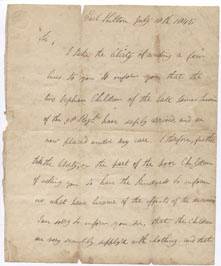 Earl Shilton July 10th 1845
Sir,
I take the liberty of sending a few
lines to you to inform you that the
two Orphan Children of the late
of the Regt. have safely arrived and are
now placed under my care. I therefore, further
take the liberty on the part of the poor Children
of asking you to have the kindness to inform
me what have become of the effects of the
I am sorry to inform you Sir, that the Children
are very scantily supplied with clothing, and that